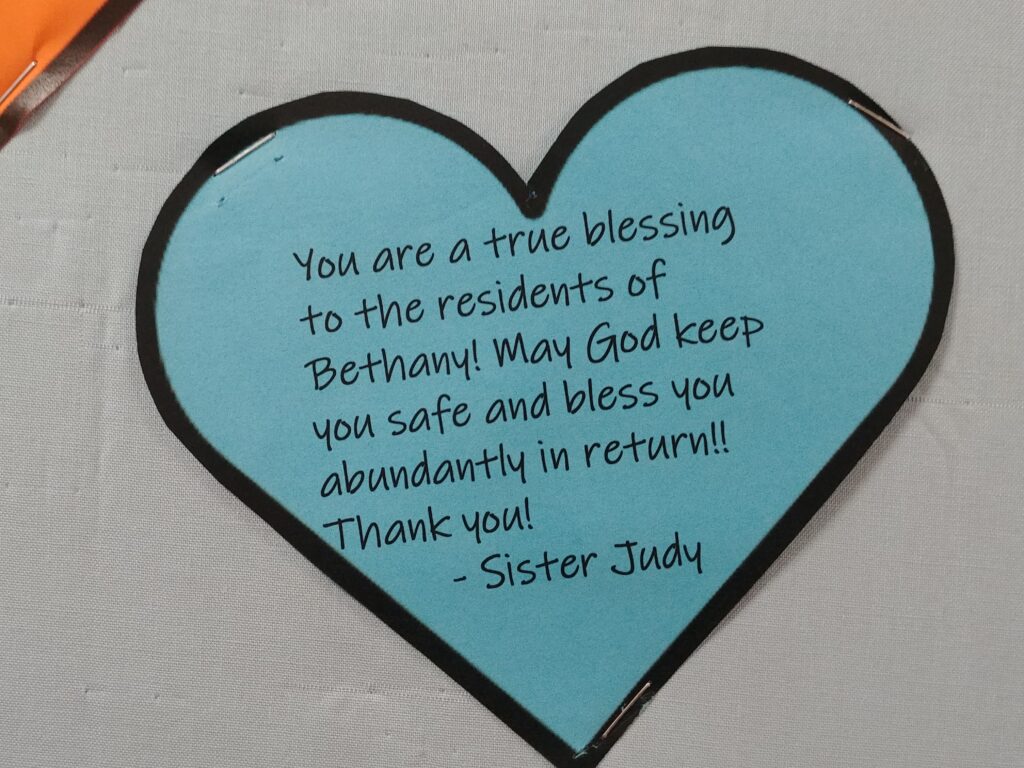 You are a true blessing
to the residents of
Bethany! May God keep
you safe and bless you
abundantly in return!!
Thank you!
- Sister Judy